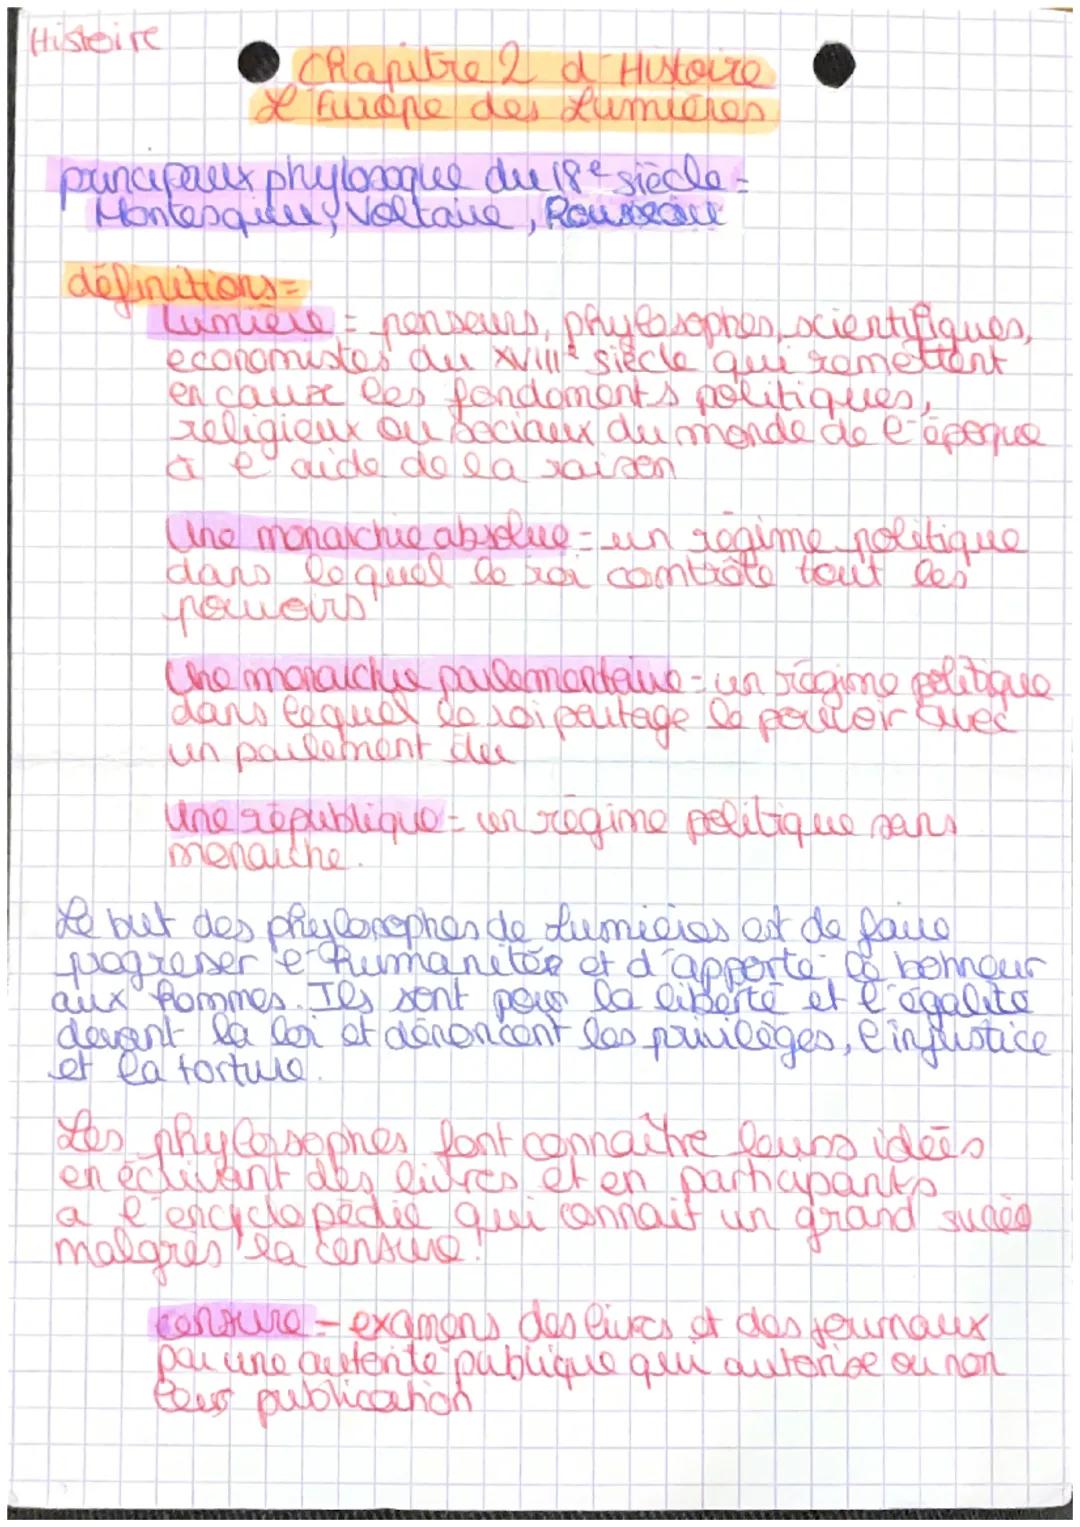 Histoire
Chapitre 2 d'Histoire
L'Europe des Lumières
principaux phylosoque du 18e siècle =
Montesquieu, Voltaire, Rousseau
définitions =
Lumière = penseurs, phylosophes, scientifiques,
economistes du XVIIIe siècle qui remettent
en cause les fondements politiques,
religieux ou sociaux du monde de l'époque
a l'aide de la raison
Une monarchie absolue = un régime politique
dans lequel le roi contrôle tout les
pouvoirs
Une monarchie parlementaire = un régime politique
dans lequel le roi partage le pouvoir avec
un parlement élu
Une république = un régime politique sans
monarche.
Le but des phylosophes de Lumières est de faire
progresser l'humanitée et d'apporté le bonheur
aux hommes. Ils sont pour la liberté et l'égalité
devant la loi et dénoncent les privilèges, l'injustice
et la torture.
Les phylosophes font connaître leurs idées
en écrivant des livres et en participants
a l'encyclopédie qui connait un grand succès
malgrés la censure.
censure = examens des livres et des journaux
par une autorité publique qui autorise ou non
leur publication